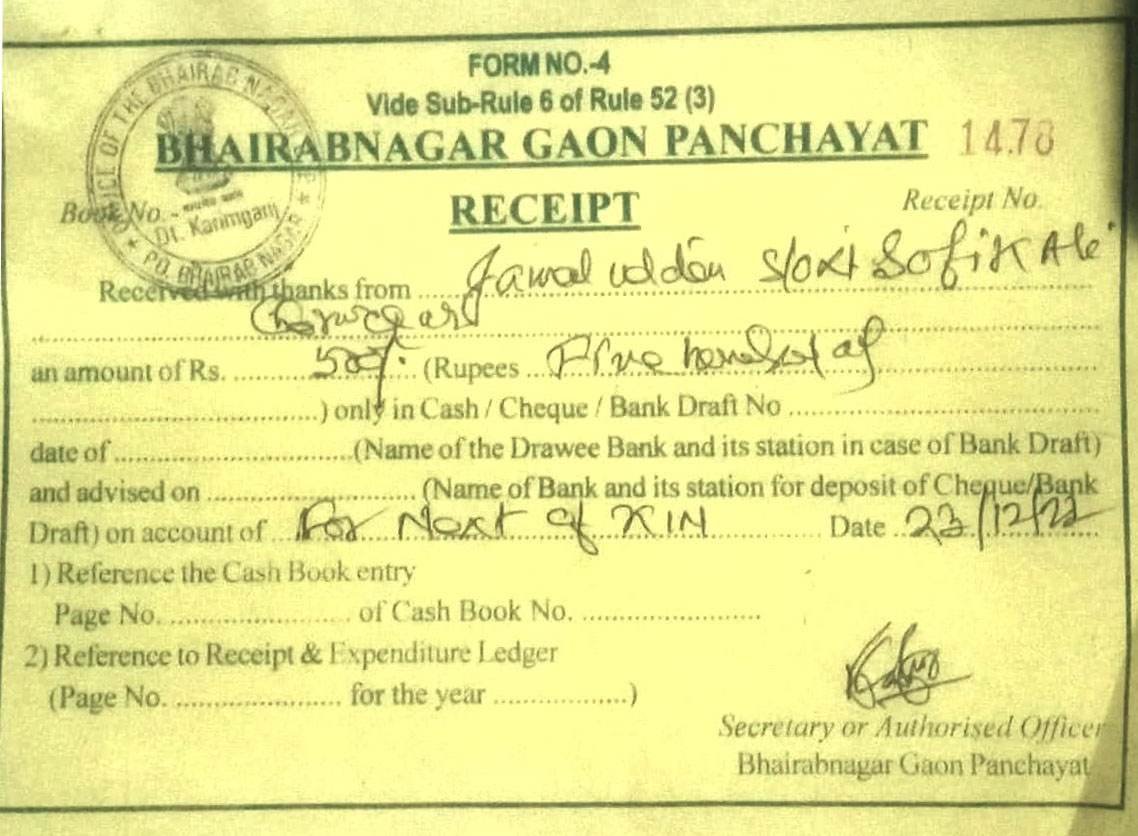 FORM NO.-4
Vide Sub-Rule 6 of Rule 52 (3)
BHAIRABNAGAR GAON PANCHAYAT 1478
OFFICE OF THE BHAIRAB NAGAR
Dt. Karimganj
P.O. BHAIRAB NAGAR
Book No. - Receipt No.
RECEIPT
Received with thanks from Jamal uddin S/o Sofik Ali
an amount of Rs. 500/- (Rupees Five
) only in Cash / Cheque / Bank Draft No
date of (Name of the Drawee Bank and its station in case of Bank Draft)
and advised on (Name of Bank and its station for deposit of Cheque/Bank
Draft) on account of For Next of KIN Date 23/12/22
1) Reference the Cash Book entry
Page No. of Cash Book No.
2) Reference to Receipt & Expenditure Ledger
(Page No. for the year )
Secretary or Authorised Officer
Bhairabnagar Gaon Panchayat